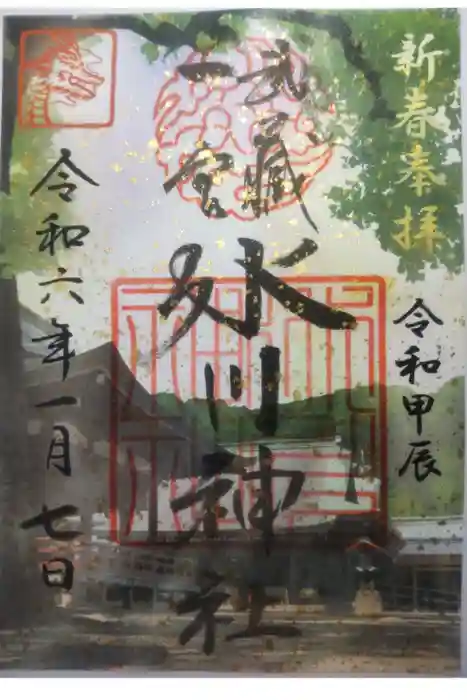 新春奉拝
令和甲辰
武蔵
一宮
氷川神社
令和六年一月七日